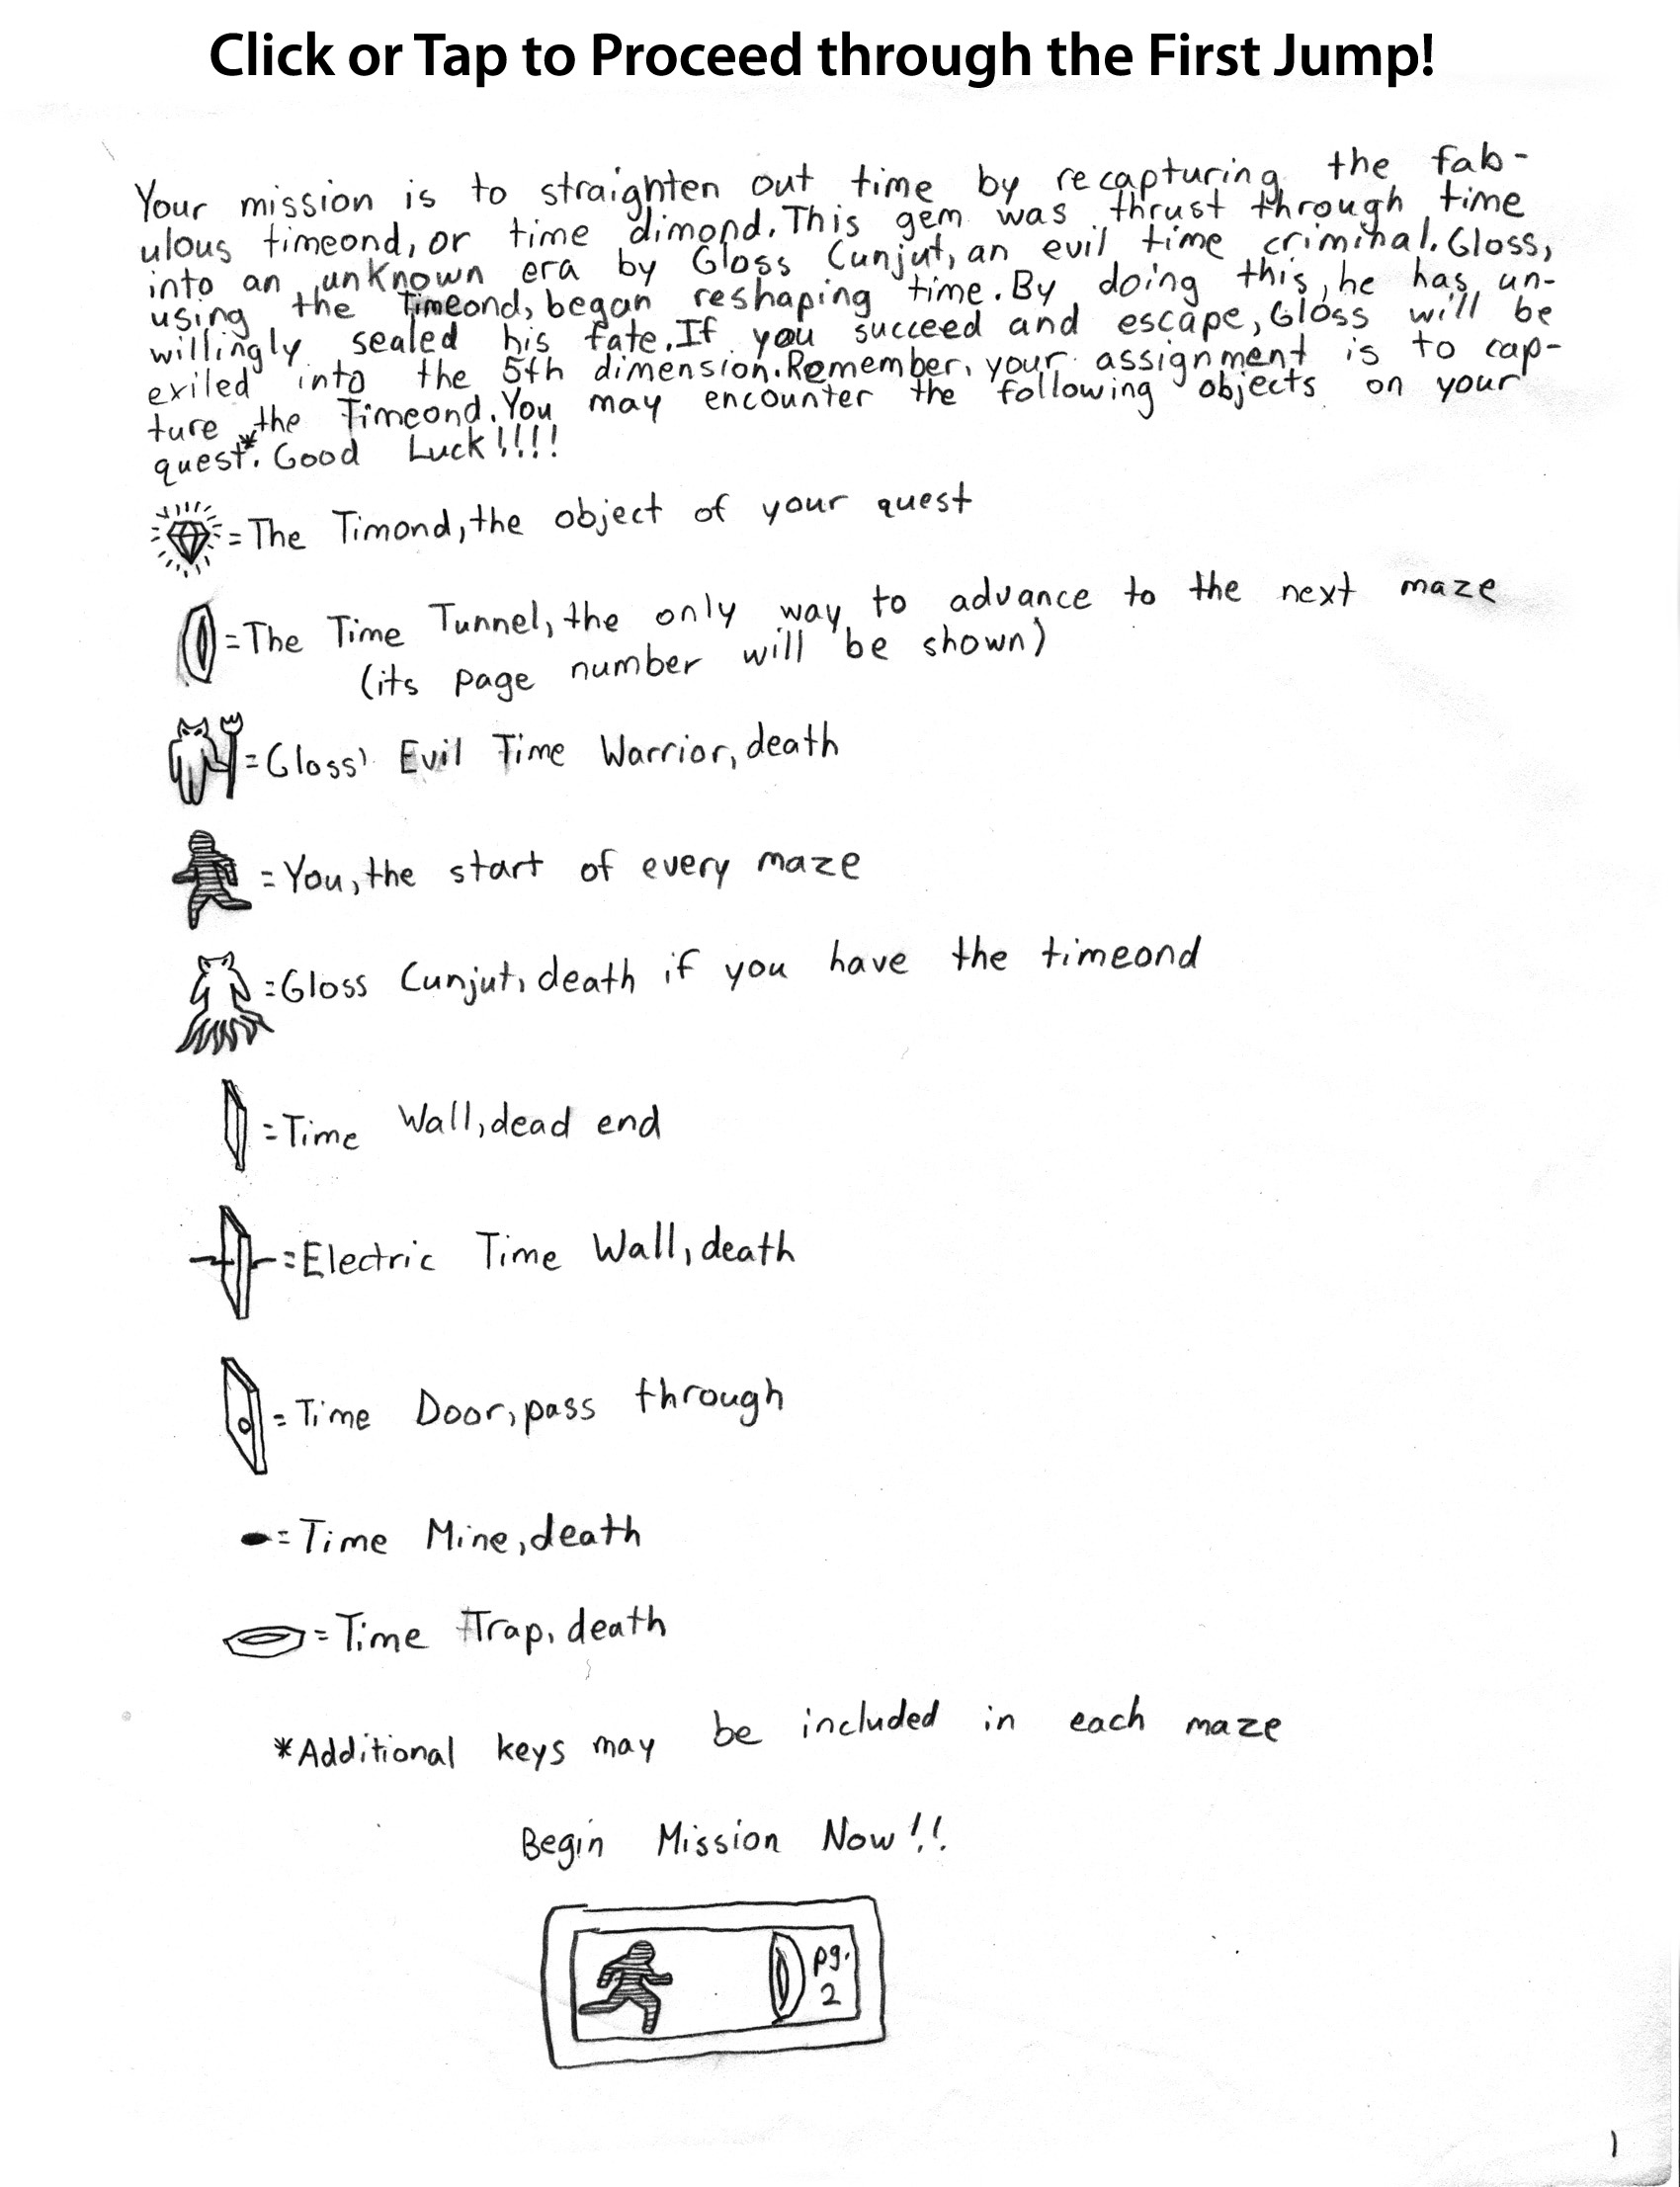 Click or Tap to Proceed through the First Jump!
Your mission is to straighten out time by recapturing the fab-
ulous timeond, or time dimond. This gem was thrust through time
into an unknown era by Gloss Cunjut, an evil time criminal. Gloss,
using the timeond, began reshaping time. By doing this, he has un-
willingly sealed his fate. If you succeed and escape, Gloss will be
exiled into the 5th dimension. Remember, your assignment is to cap-
ture the Timeond. You may encounter the following objects on your
quest*. Good Luck!!!!
=The Timond, the object of your quest
=The Time Tunnel, the only way to advance to the next maze
(its page number will be shown)
=Gloss' Evil Time Warrior, death
=You, the start of every maze
=Gloss Cunjut, death if you have the timeond
=Time Wall, dead end
=Electric Time Wall, death
=Time Door, pass through
=Time Mine, death
=Time Trap, death
*Additional keys may be included in each maze
Begin Mission Now!!
pg.
2
1